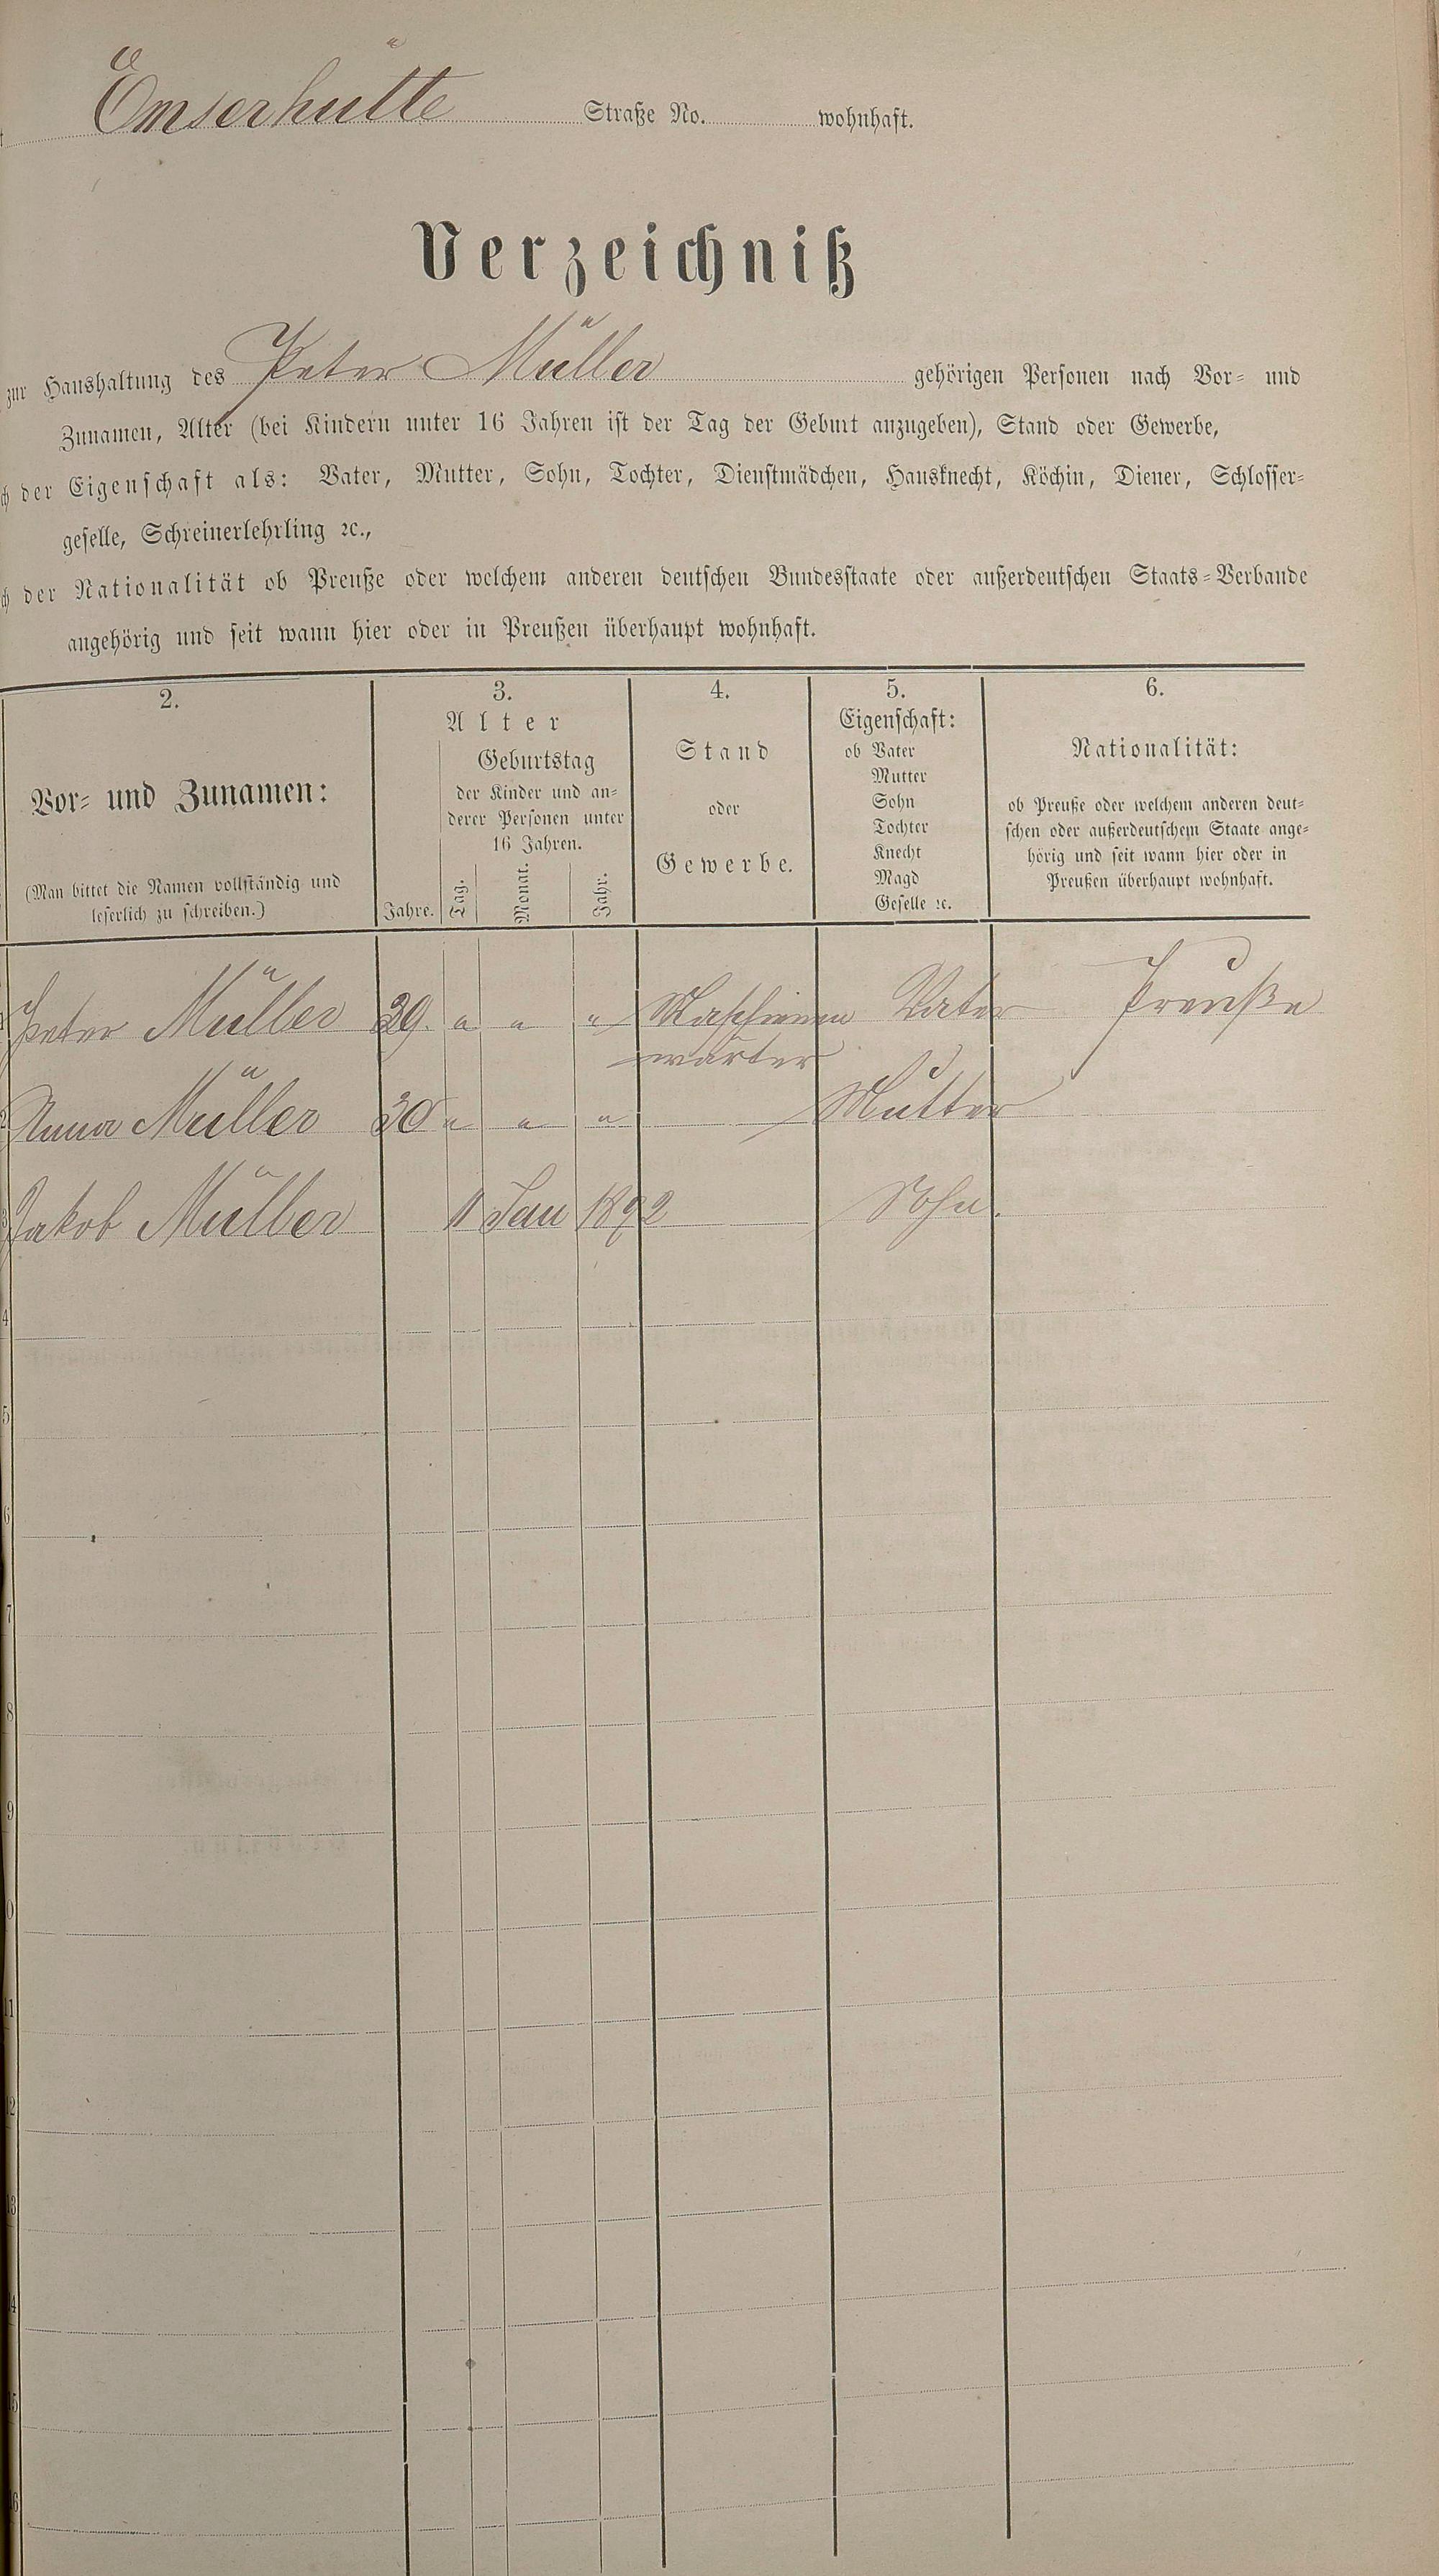 Emserhütte Straße No. wohnhaft.
Verzeichniß
zur Haushaltung des Peter Müller gehörigen Personen nach Vor- und
Zunamen, Alter (bei Kindern unter 16 Jahren ist der Tag der Geburt anzugeben), Stand oder Gewerbe,
der Eigenschaft als: Vater, Mutter, Sohn, Tochter, Dienstmädchen, Hausknecht, Köchin, Diener, Schlosser-
geselle, Schreinerlehrling ꝛc.,
der Nationalität ob Preuße oder welchem anderen deutschen Bundesstaate oder außerdeutschen Staats-Verbande
angehörig und seit wann hier oder in Preußen überhaupt wohnhaft.
2. 3. 4. 5. 6.
Vor- und Zunamen:
(Man bittet die Namen vollständig und
leserlich zu schreiben.)
Alter
Jahre.
Geburtstag
der Kinder und an-
derer Personen unter
16 Jahren.
Tag. Monat. Jahr.
Stand
oder
Gewerbe.
Eigenschaft:
ob Vater
Mutter
Sohn
Tochter
Knecht
Magd
Geselle ꝛc.
Nationalität:
ob Preuße oder welchem anderen deut-
schen oder außerdeutschem Staate ange-
hörig und seit wann hier oder in
Preußen überhaupt wohnhaft.
1 Peter Müller 39. " " " Maschienen Vater Preuße
wärter
2 Anna Müller 30 " " " Mutter
3 Jakob Müller 11 Jan 1892 Sohn.
4
5
6
7
8
9
0
11
12
13
14
15
16